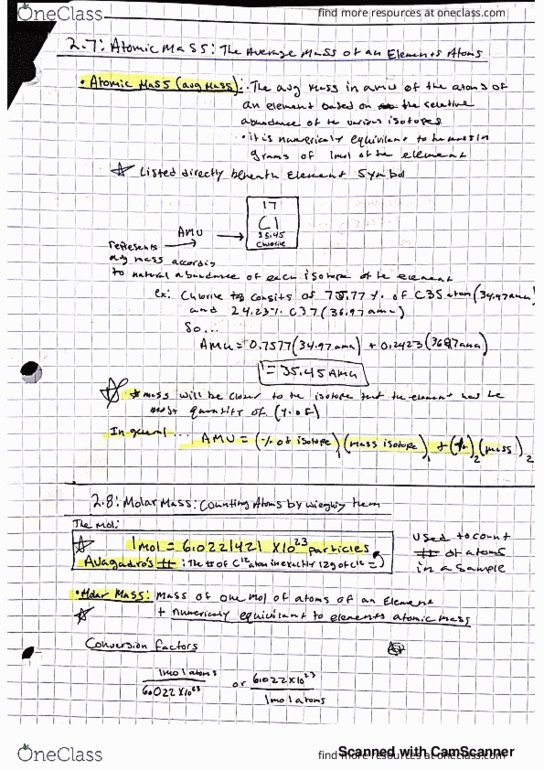 OneClass
find more resources at oneclass.com
2.7: Atomic Mass: The Average Mass of an Elements Atoms
• Atomic Mass (avg Mass): The avg Mass in amu of the atoms of
an element based on the relative
abundance of the various isotopes
• it is numericly equivilant to the mass in
grams of 1mol of the element
☆ Listed directly beneath Element Symbol
17
Cl
35.45
Chlorine
AMU
represents
avg mass according
to natural abundance of each isotope of the element
ex: Chlorine consits of 75.77% of C35 atom (34.97amu)
and 24.23% C37 (36.97amu)
So...
AMU = 0.7577(34.97amu) + 0.2423(36.97amu)
= 35.45 AMU
☆ mass will be closer to the isotope that the element has the
most quantity of (% of)
In general... AMU = (% of isotope)₁ (mass isotope)₁ + (%)₂ (mass)₂
2.8: Molar Mass: Counting Atoms by wieghing them
The Mol:
☆ 1mol = 6.0221421 X10²³ particles
Avagadro's #: (The # of C¹² atom in exactly 12g of C¹² =)
Used to count
# of atoms
in a sample
• Molar Mass: Mass of one mol of atoms of an Element
☆ + numericly equivilant to elements atomic mass
Conversion factors
1mol atoms
6.022 X10²³
or
6.022X10²³
1mol atoms
OneClass
find more resources at oneclass.com
Scanned with CamScanner